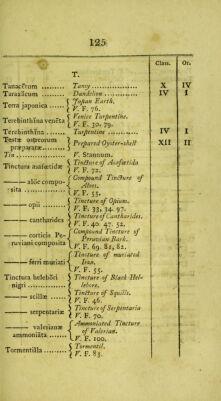 125
Class. Or.
T.
Tanacētum ......... Tansy ............... X IV
Taraxăcum ......... Dandelion ............... IV I
Terra japonica ...... { Japan Earth. V. F. 76.
Terebinthĭna venĕta { Venice Turpentine. V. F. 30. 79.
Terebinthĭna ...... Turpentine ............ IV I
Testæ ostreorum præparatæ ......... } Prepared Oyster-shell XII II
Tin ............... V. Stannum.
Tinctura asafœtidæ { Tincture of Asafœtida V. F. 72.
—— alöes compo-sita ............ { Compound Tincture of Aloes. V. F. 55.
—— opii ......... { Tincture of Opium. V. F. 33. 34. 97.
—— cantharides { Tincture of Cantharides. V. F. 40. 47. 52.
—— corticis Pe-ruviani composita { Compound Tincture of Peruvian Bark. V. F. 69. 81, 82.
—— ferri muriati { Tincture of muriated Iron. V. F. 55.
Tinctura helebŏri nigri ............ { Tincture of Black Hel-lebore.
—— scillæ ...... { Tincture of Squills. V. F. 46.
—— serpentariæ { Tincture of Serpentaria V. F. 70.
—— valerianæ ammoniăta ...... { Ammoniated Tincture of Valerian. V. F. 100.
Tormentilla ......... { Tormentil. V. F. 83.